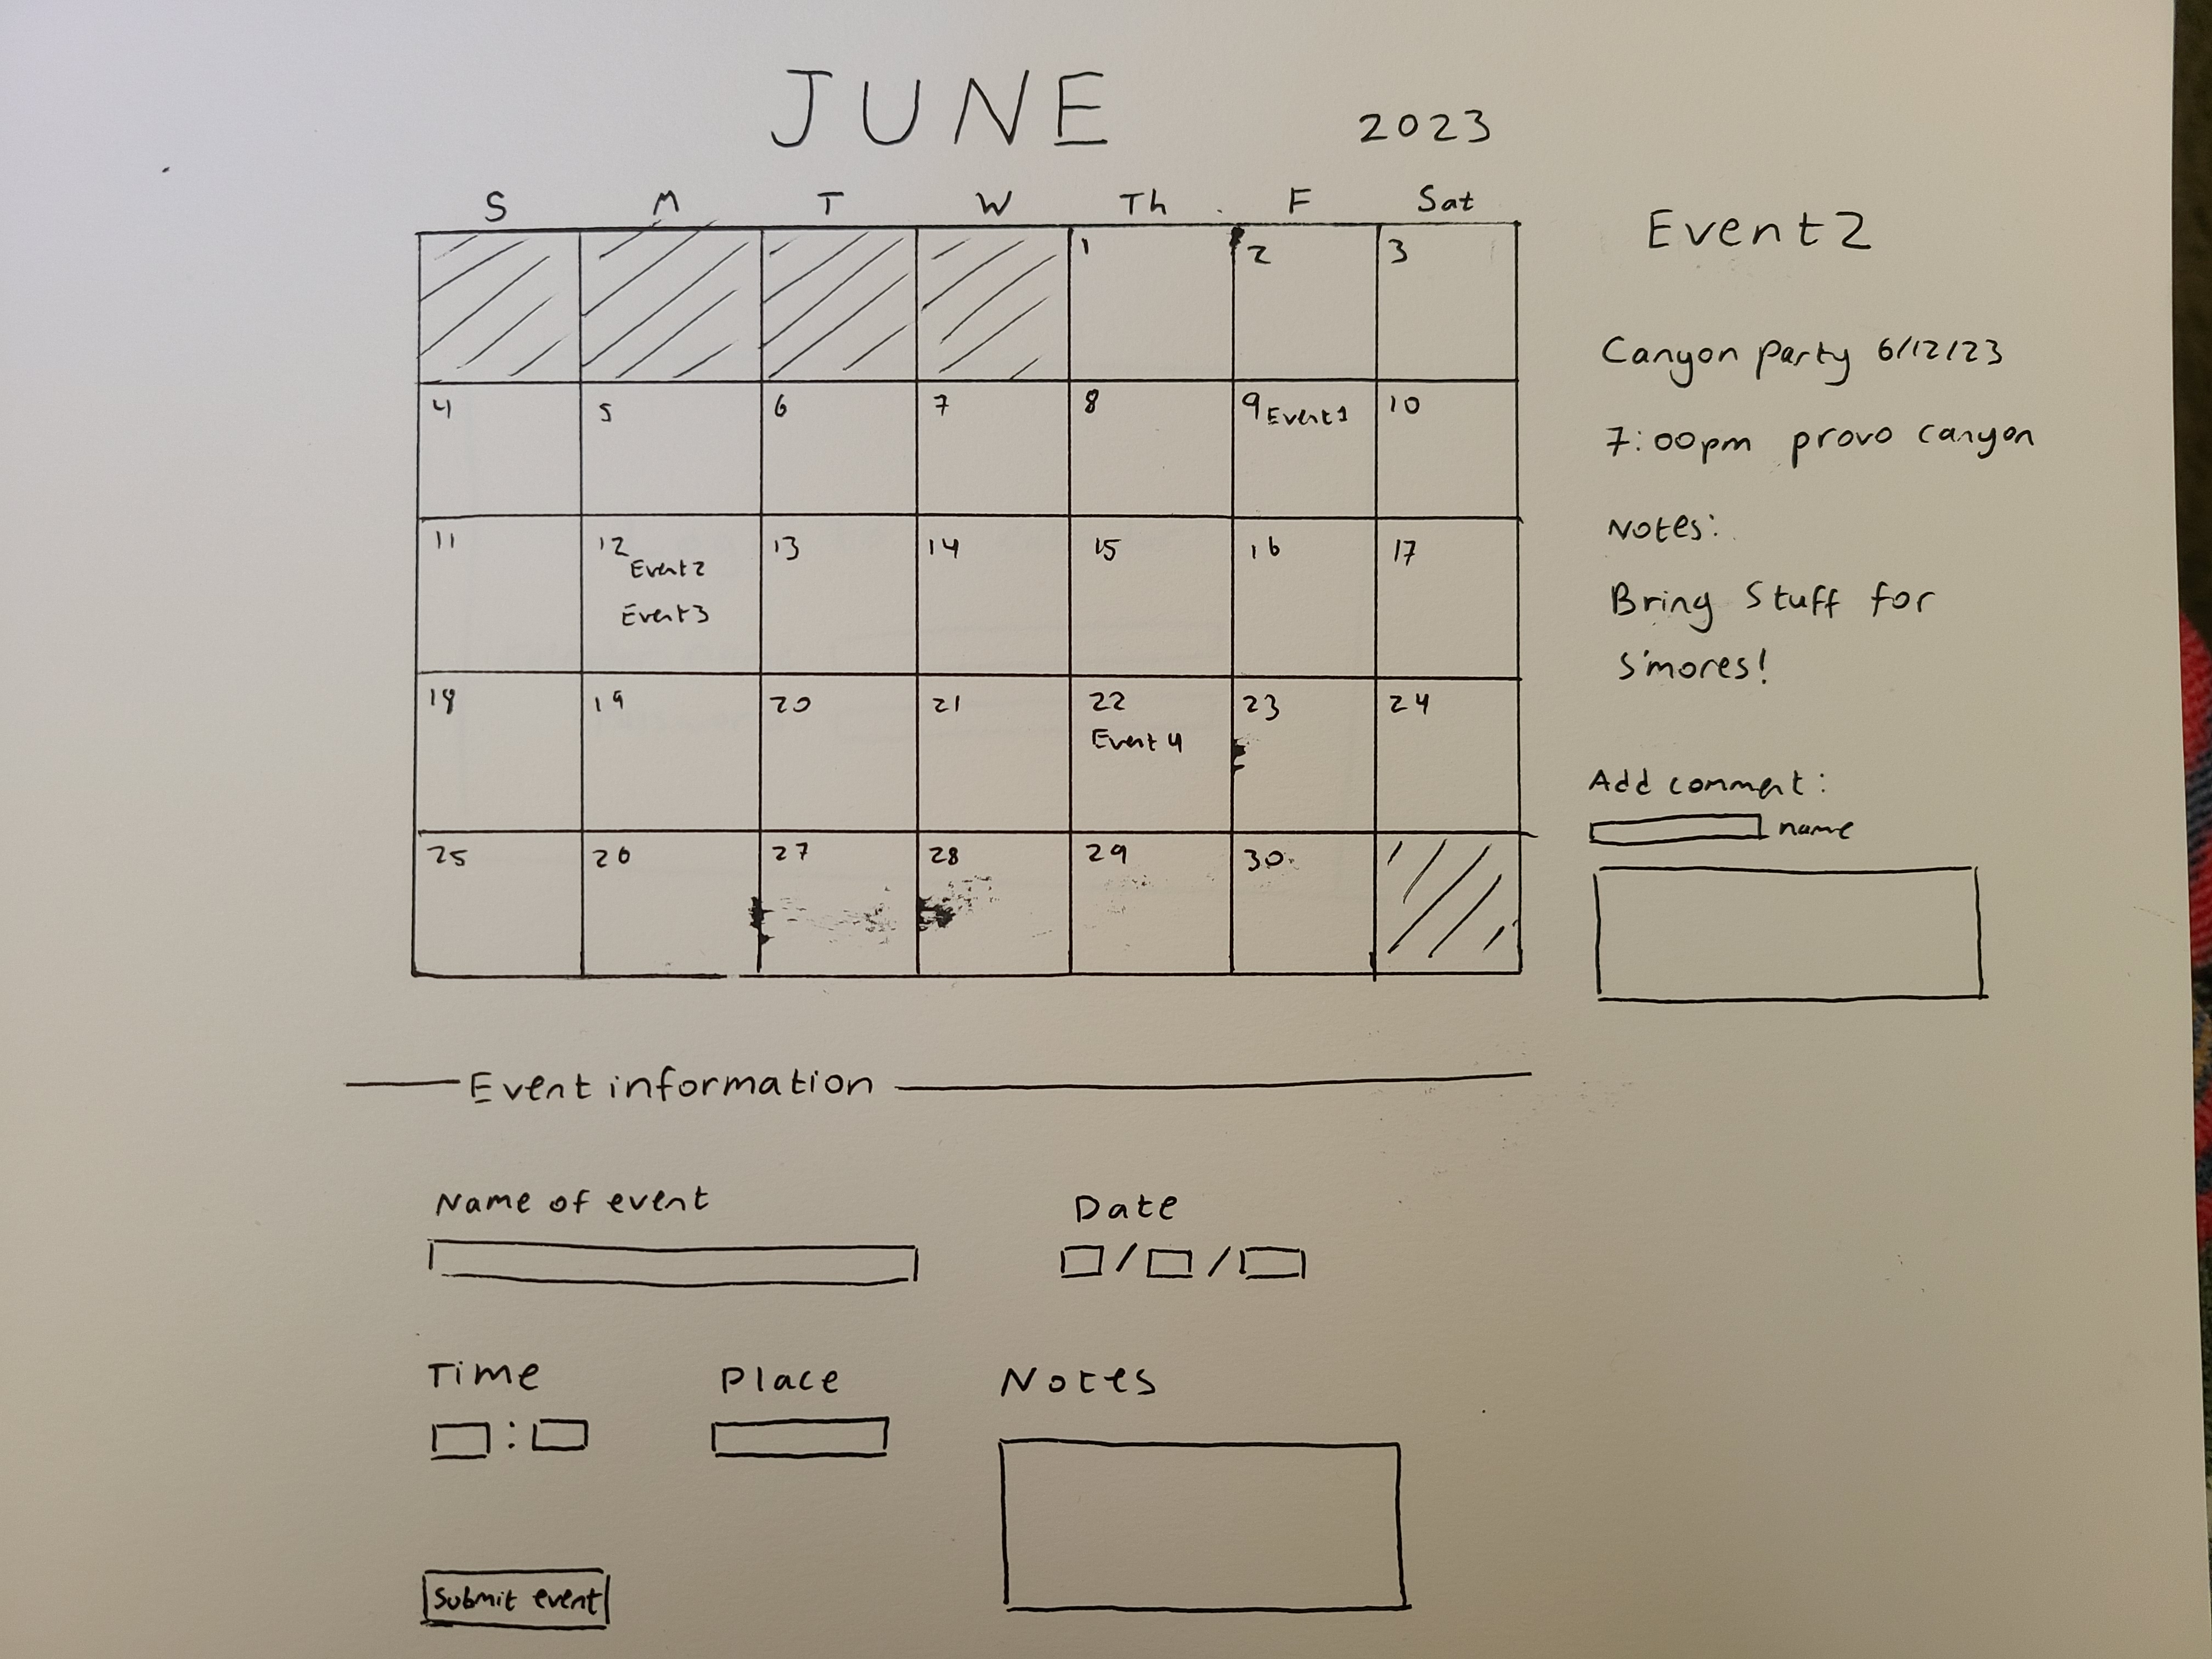 JUNE 2023
S M T W Th F Sat
1 2 3
4 5 6 7 8 9 Event1 10
11 12 13 14 15 16 17
Event2
Event3
18 19 20 21 22 23 24
Event 4
25 26 27 28 29 30
Event2
Canyon Party 6/12/23
7:00pm provo canyon
Notes:
Bring Stuff for
S'mores!
Add comment:
name
Event information
Name of event
Date
/ /
Time Place Notes
:
Submit event